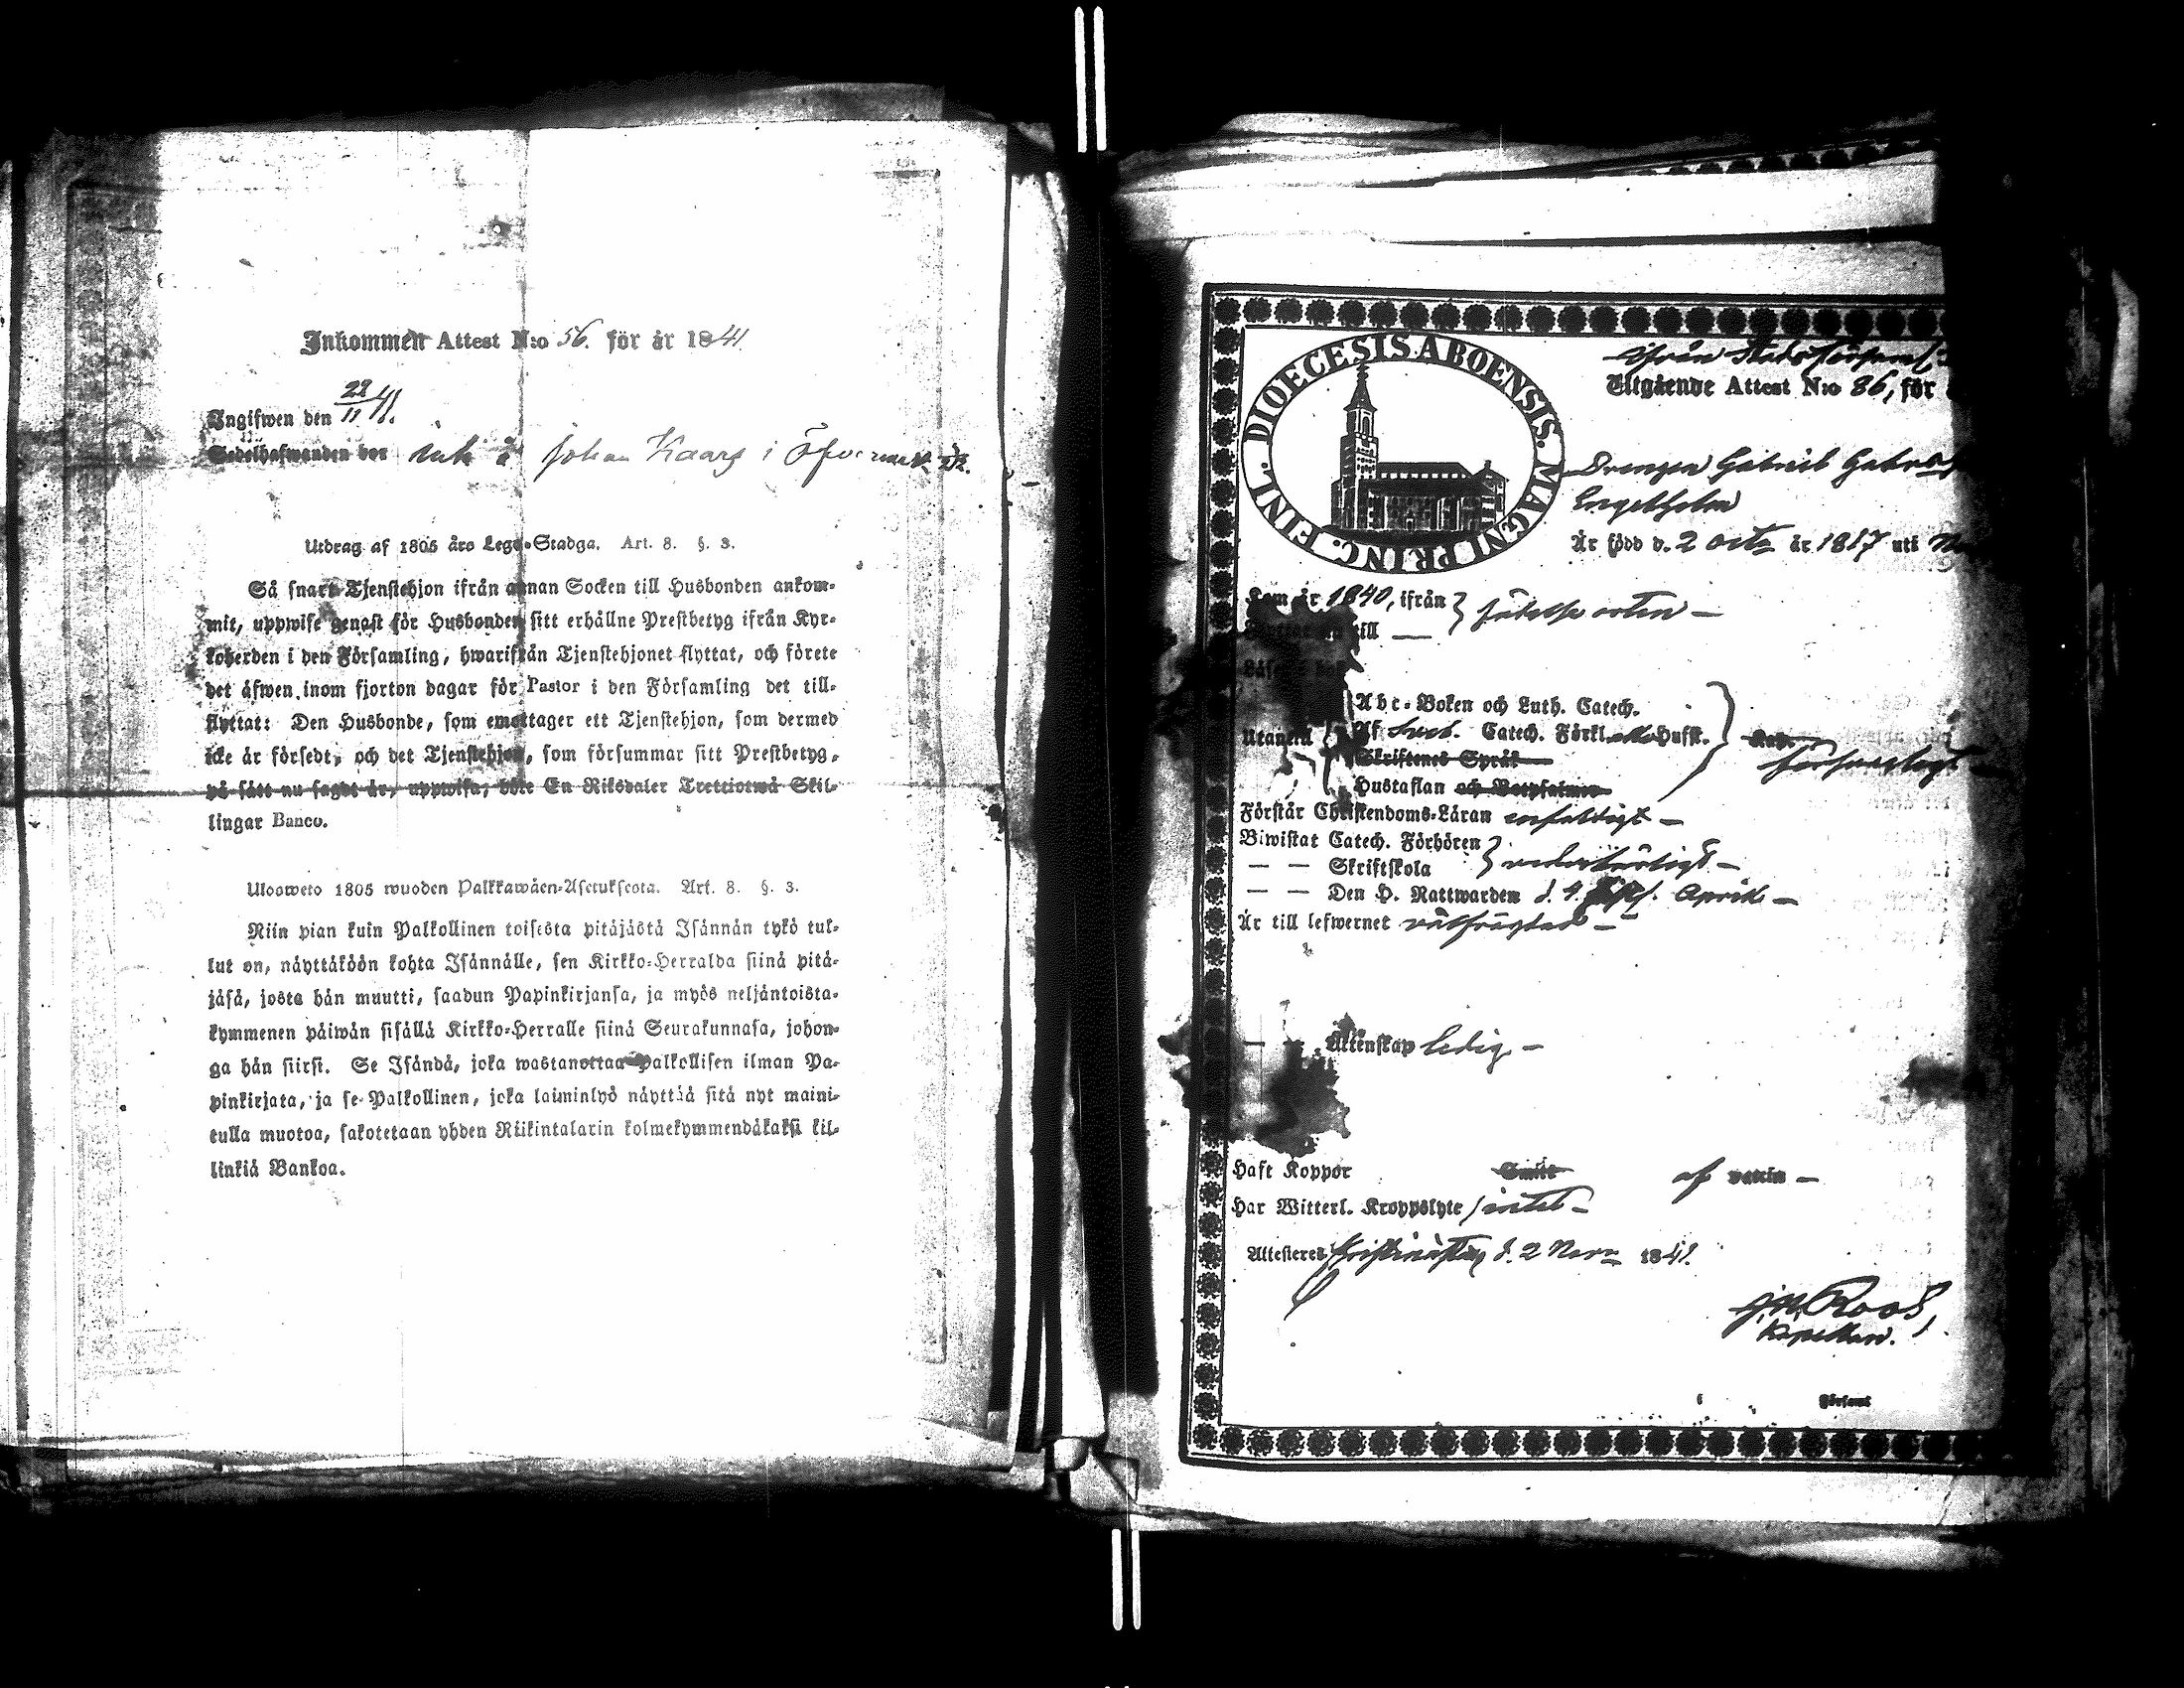 Inkommen Attest N:o 56. för år 1841
Ingifwen den 22/11 41.
Sedelhafwanden bor inh å Johan Kaars i Öfvermark
Utdrag af 1805 års Lego-Stadga. Art. 8. §. 3.
Så snart Tjenstehjon ifrån annan Socken till Husbonden ankom-
mit, uppwise genast för Husbonden sitt erhållne Prestbetyg ifrån Kyr-
koherden i den Församling, hwarifrån Tjenstehjonet flyttat, och förete
det äfwen inom fjorton dagar för Pastor i den Församling det till-
flyttat: Den Husbonde, som emottager ett Tjenstehjon, som dermed
icke är försedt, och det Tjenstehjon, som försummar sitt Prestbetyg,
på sätt nu sagdt är, uppwisa, böte En Riksdaler Trettiotwå Skil-
lingar Banco.
Ulosweto 1805 wuoden Palkkawäen-Asetuksesta. Art. 8. §. 3.
Niin pian kuin Palkollinen toisesta pitäjästä Isännän tykö tul-
lut on, näyttäköön kohta Isännälle, sen Kirkko-Herralda siinä pitä-
jäsä, josta hän muutti, saadun Papinkirjansa, ja myös neljäntoista-
kymmenen päiwän sisällä Kirkko-Herralle siinä Seurakunnasa, johon-
ga hän siirsi. Se Isändä, joka wastanottaa Palkollisen ilman Pa-
pinkirjata, ja se Palkollinen, joka laiminlyö näyttää sitä nyt maini-
tulla muotoa, sakotetaan yhden Riikintalarin kolmekymmendäkaksi kil-
linkiä Bankoa.
DIOECESIS ABOENSIS. MAGNI PRINC. FINL.
ifrån Stadsförsaml:
Utgående Attest N:o 86, för
Drengen Gabriel Gabriels
Engelholm
Är född d. 2 octr år 1817 uti
Som år 1840, ifrån
till — födelse orten —
Läser
Abc-Boken och Luth. Catech.
Utantill Af Sveb. Catech. Förkl. Hufst.
Skriftenes Språk
försvarligt —
Hustaflan och Botpsalmer
Förstår Christendoms-Läran enfaldigt —
Biwistat Catech. Förhören
— — Skriftskola vederbörligt —
— — Den H. Nattwarden d. 4. April —
Är till lefwernet välfrägdad —
Äktenskap ledig —
Haft Koppor Smitt af vaccin —
Har Witterl. Kroppslyte intet —
Attesteras Kristinestad d. 2 Novr 1841.
J. N. Roos,
Kapellan.
i Församl